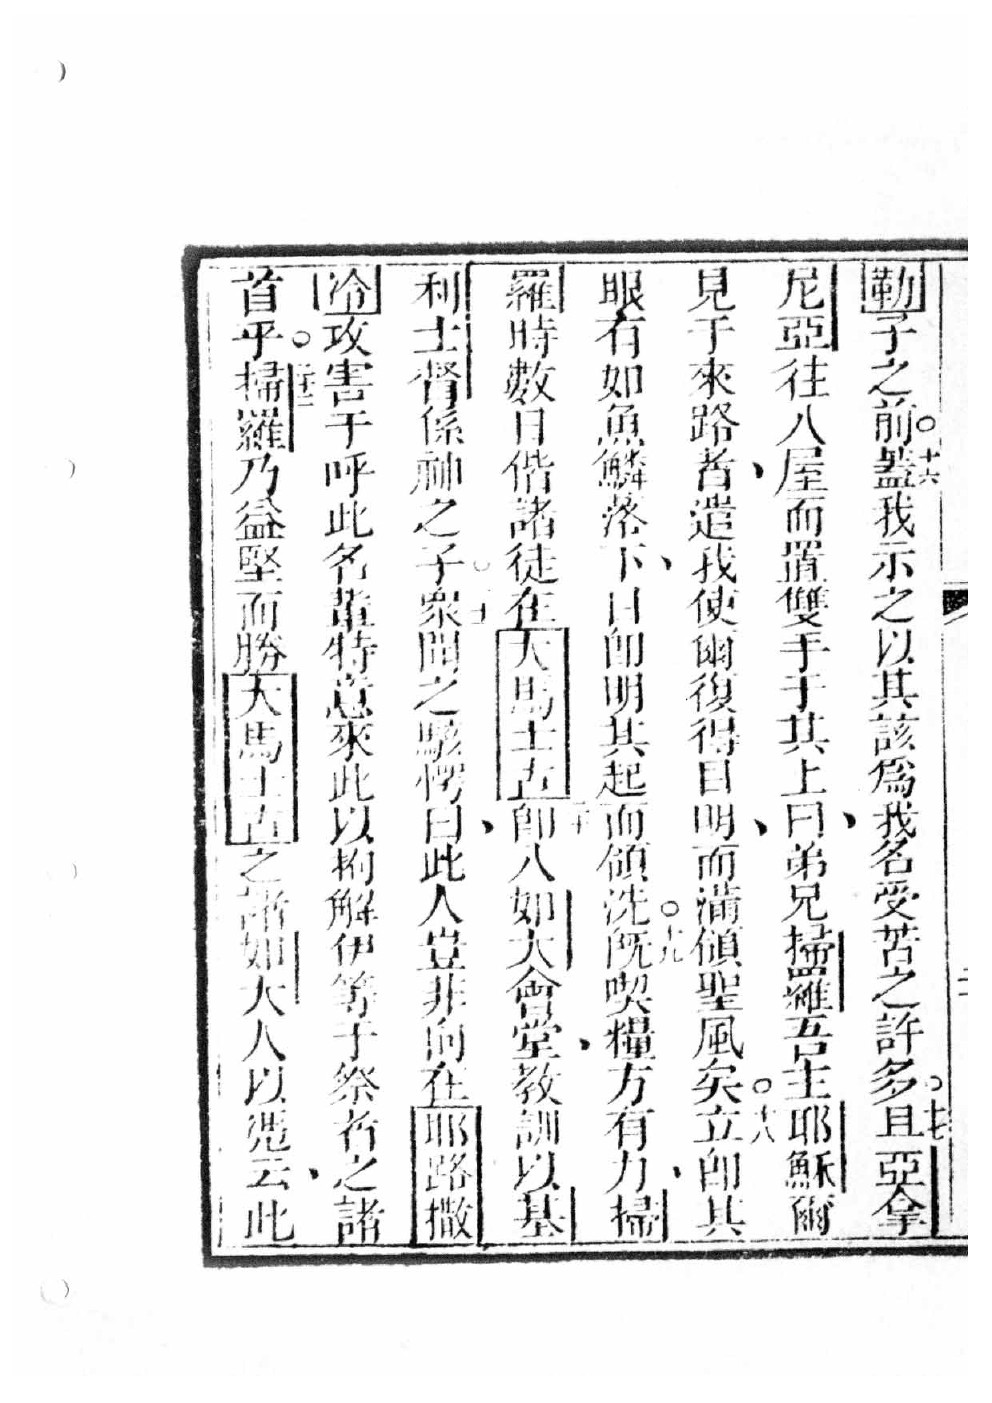 勒子之前十六蓋我示之以其該爲我名受苦之許多十七且亞拿
尼亞往入屋而置雙手于其上曰弟兄掃羅吾主耶穌爾
見于來路者遣我使爾復得目明而滿傾聖風矣十八立即其
眼有如魚鱗落下目即明其起而傾洗十九既喫糧方有力掃
羅時數日偕諸徒在大馬士古二十即入如大會堂教訓以基
利士督係神之子衆聞之駭愕曰此人豈非向在耶路撒
冷攻害于呼此名輩特意來此以拘解伊等于祭者之諸
首乎二十二掃羅乃益堅而勝大馬士古之諸如大人以憑云此